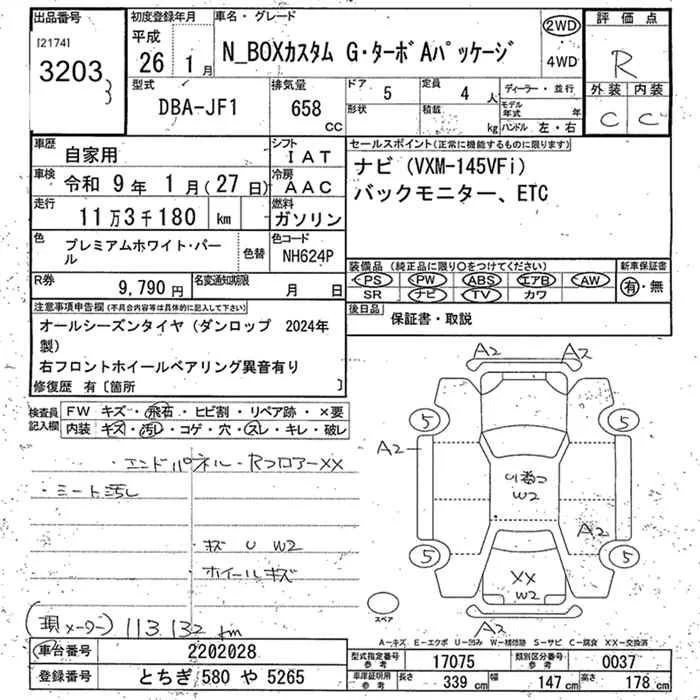 出品番号 初度登録年月 車名・グレード 2WD 評価点
[2174] 平成
3203 3 26 1月 N_BOXカスタム G・ターボAパッケージ 4WD R
型式 排気量 ドア 5 定員 4人 ディーラー・並行 外装 内装
DBA-JF1 658 cc 形状 積載 kg モデル年式 年 ハンドル 左・右 C C
車歴 自家用 シフト IAT セールスポイント(正常に機能するものに限ります)
車検 令和 9年 1月(27日) 冷房 AAC ナビ(VXM-145VFi)
走行 11万3千180 km 燃料 ガソリン バックモニター、ETC
色 プレミアムホワイト・パール 色替 色コード NH624P
装備品(純正品に限り○をつけてください) 新車保証書
R券 9,790円 名変通知期限 月 日 PS PW ABS エアB AW 有・無
SR ナビ TV カワ
注意事項申告欄(不具合内容等は具体的に記入して下さい) 後日品 保証書・取説
オールシーズンタイヤ(ダンロップ 2024年
製)
右フロントホイールベアリング異音有り
修復歴 有〔箇所 〕
検査員記入欄 FW キズ・飛石・ヒビ割・リペア跡・×要
内装 キズ・汚レ・コゲ・穴・スレ・キレ・破レ
・エンドパネル・Rフロアー××
・シート汚レ
・キズ U W2
ホイールキズ
(現メーター) 113,132 km
A2 A2
5 5
A2
W2
A2
5 5
××
W2
スペア
A2
A-キズ E-エクボ U-凹み W-補修跡 S-サビ C-腐食 XX-交換済
車台番号 2202028 型式指定番号 参考 17075 類別区分番号 参考 0037
登録番号 とちぎ 580 や 5265 車庫証明用 参考 長さ 339cm 幅 147cm 高さ 178cm